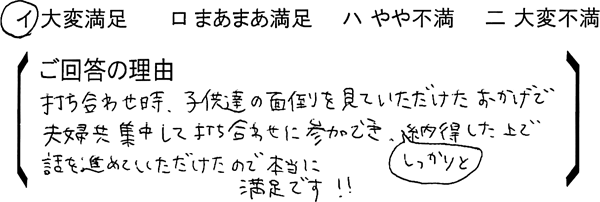 イ 大変満足 ロ まあまあ満足 ハ やや不満 ニ 大変不満
ご回答の理由
打ち合わせ時、子供達の面倒を見ていただけたおかげで
夫婦共集中して打ち合わせに参加でき、納得した上で
しっかりと
話を進めていいただけたので本当に
満足です!!